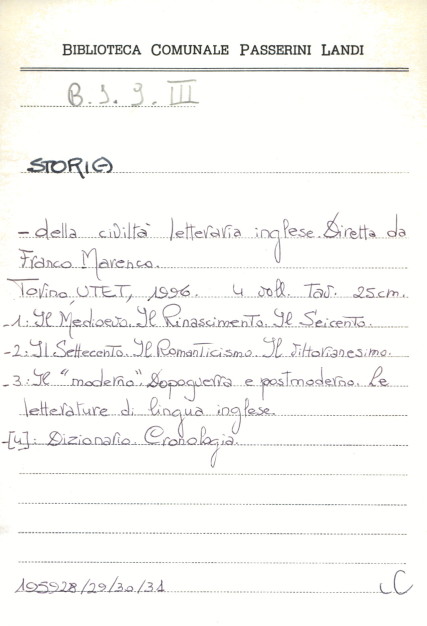 BIBLIOTECA COMUNALE PASSERINI LANDI
B. J. J. III
STORIA
- della civiltà letteraria inglese. Diretta da
Franco Marenco.
Torino, UTET, 1996. 4 voll. Tav. 25cm.
- 1: Il Medioevo. Il Rinascimento. Il Seicento.
- 2: Il Settecento. Il Romanticismo. Il Vittorianesimo.
- 3: Il "moderno". Dopoguerra e postmoderno. Le
letterature di lingua inglese.
- [4]: Dizionario. Cronologia.
195928/29/30/31